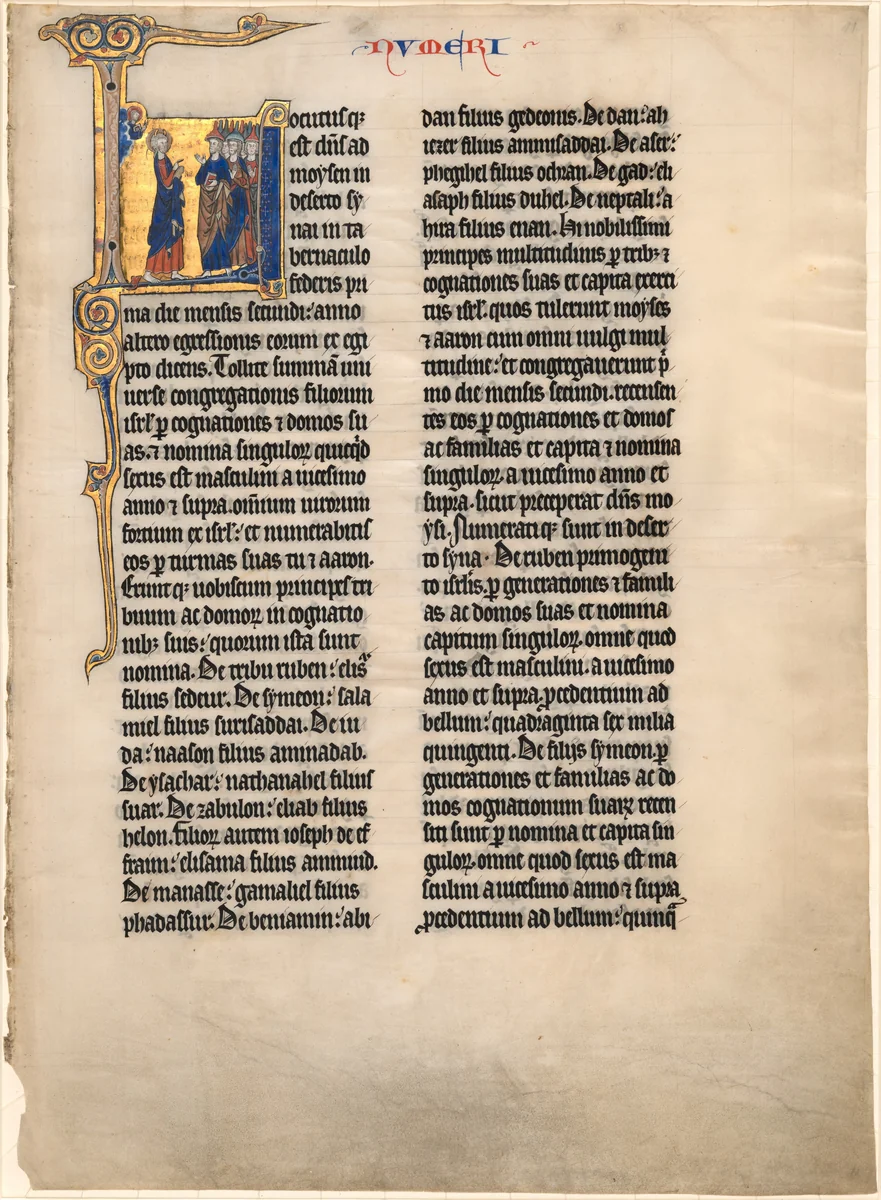 NUMERI
Locutusq;
est dn̄s ad
moysen in
deserto sy
nai in ta
bernaculo
federis pri
ma die mensis secundi: anno
altero egressionis eorum ex egi
pto dicens. Tollite summā uni
uerse congregationis filiorum
isrl̄ ꝑ cognationes ⁊ domos su
as. ⁊ nomina singuloꝝ quicq̇d
sexus est masculini a uicesimo
anno ⁊ supra. om̄ium uirorum
fortium ex isrl̄: et numerabitis
eos ꝑ turmas suas tu ⁊ aaron.
Eruntq; uobiscum principes tri
buum ac domoꝝ in cognatio
nib; suis: quorum ista sunt
nomina. De tribu ruben: elisᵃ
filius sedeur. De symeon: sala
miel filius surisaddai. De iu
da: naason filius aminadab.
De ysachar: nathanahel filius
suar. De zabulon: eliab filius
helon. filioꝝ autem ioseph de ef
fraim: elisama filius ammiud.
De manasse: gamaliel filius
phadassur. De beniamin: abi
dan filius gedeonis. De dan: ah
iezer filius ammisaddai. De aser:
phegihel filius ochran. De gad: eli
asaph filius duhel. De neptali: a
hira filius enan. Hi nobilissimi
principes multitudinis ꝑ trib; ⁊
cognationes suas et capita exerci
tus isrl̄. quos tulerunt moyses
⁊ aaron cum omni uulgi mul
titudine: et congregauerunt p̄
mo die mensis secundi. recensen
tes eos ꝑ cognationes et domos
ac familias et capita ⁊ nomina
singuloꝝ. a uicesimo anno et
supra. sicut preceperat dn̄s mo
ysi. Numeratiq; sunt in deser
to syna. De ruben primogeni
to isrl̄is. ꝑ generationes ⁊ famili
as ac domos suas et nomina
capitum singuloꝝ. omne quod
sexus est masculini. a uicesimo
anno et supra. ꝓcedentium ad
bellum: quadraginta sex milia
quingenti. De filijs symeon. ꝑ
generationes et familias ac do
mos cognationum suaꝝ recen
siti sunt ꝑ nomina et capita sin
guloꝝ. omne quod sexus est ma
sculini a uicesimo anno ⁊ supra
ꝓcedentium ad bellum: quinq̄